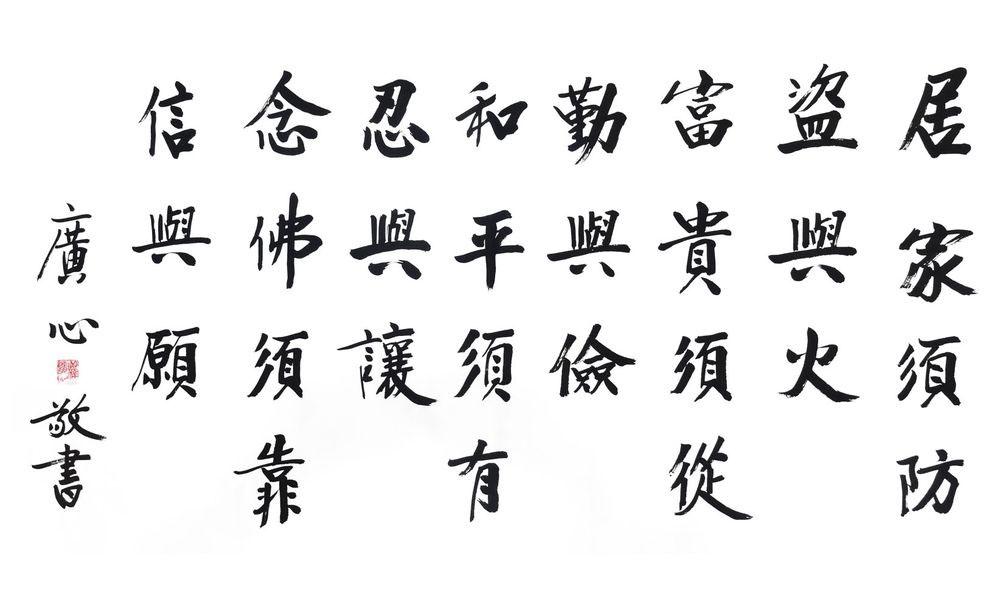 居家須防
盜與火
富貴須從
勤與儉
和平須有
忍與讓
念佛須靠
信與願
廣心敬書